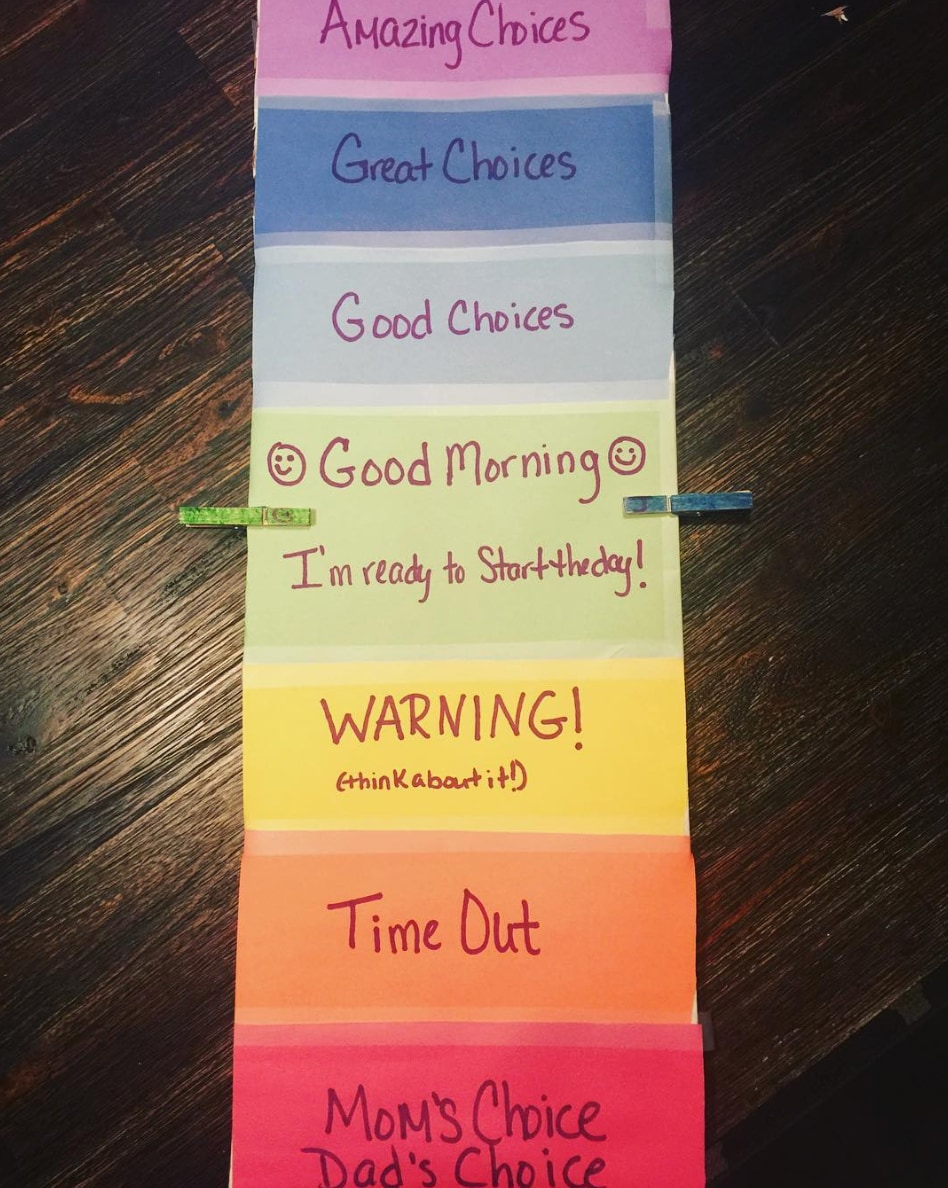 Amazing Choices
Great Choices
Good Choices
Good Morning
I'm ready to Start the day!
WARNING!
(think about it!)
Time Out
Mom's Choice
Dad's Choice